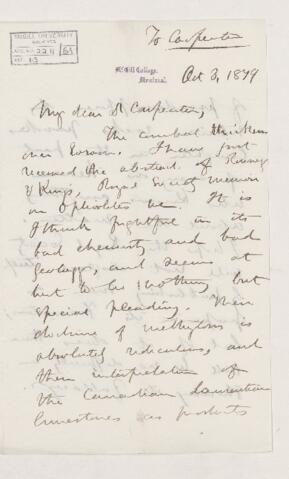 McGILL UNIVERSITY
ARCHIVES
ACC. NO. 2211 / 65
REF. 13
To Carpenter
McGill College,
Montreal.
Oct 3, 1879
My dear Dr Carpenter,
The combat thickens
over Eozoon. I have just
received the abstract of Rowney
& Kings, Royal Society memoir
on Ophiolites &c. It is
I think frightful in its
bad chemistry and bad
geology, and seems at
but to be nothing but
special pleading. Their
doctrine of methylosis is
absolutely ridiculous, and
their interpretation of
the Canadian Laurentian
limestones as products